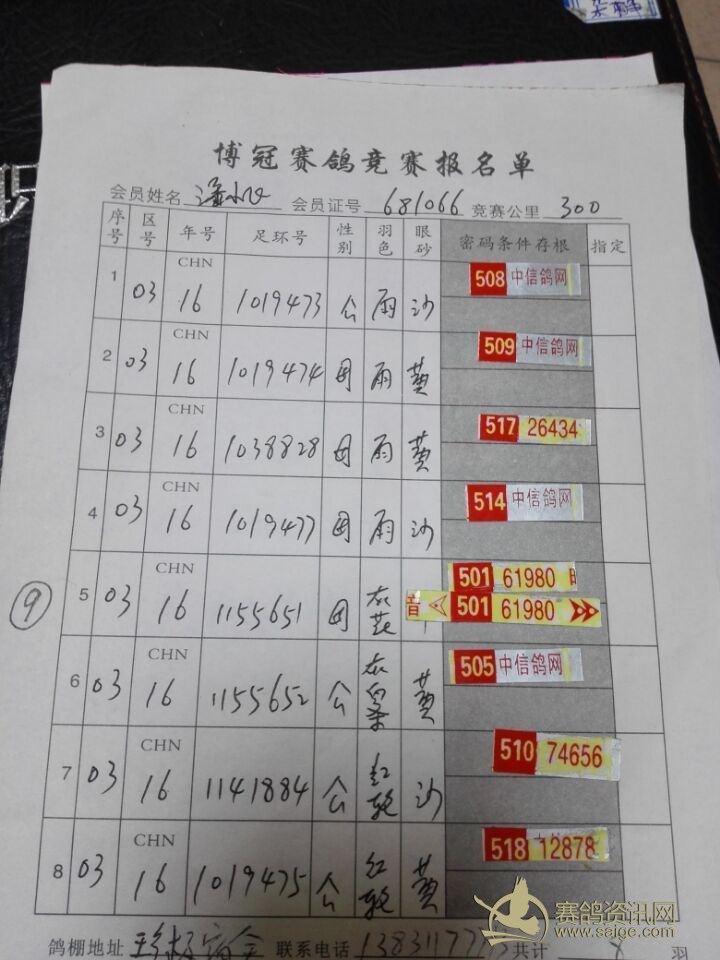 博冠赛鸽竞赛报名单
会员姓名 会员证号 681066 竞赛公里 300
序号 区号 年号 足环号 性别 羽色 眼砂 密码条件存根 指定
1 03 CHN 16 1019473 公 雨 沙 508 中信鸽网
2 03 CHN 16 1019474 母 雨 黄 509 中信鸽网
3 03 CHN 16 1038828 母 雨 黄 517 26434
4 03 CHN 16 1019477 母 雨 沙 514 中信鸽网
5 03 CHN 16 1155651 母 灰花 501 61980
音 501 61980
6 03 CHN 16 1155652 公 黄 505 中信鸽网
7 03 CHN 16 1141884 公 红轮 沙 510 74656
8 03 CHN 16 1019475 公 红轮 黄 518 12878
鸽棚地址 联系电话 共计 8 羽
9
赛鸽资讯网
www.saige.com